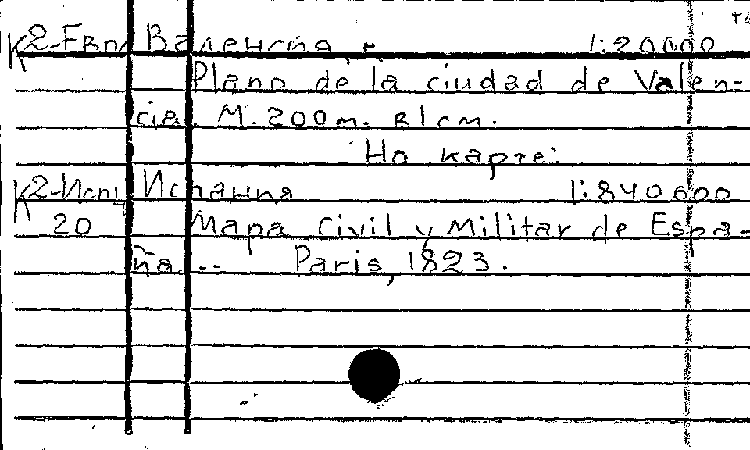 К2-Евр Валенсия. 1:20000
Plano de la ciudad de Valen-
cia. M. 200m. в 1 см.
На карте:
К2-Исп Испания 1:840000
20 Mapa Civil y Militar de Espa-
ña... Paris, 1823.